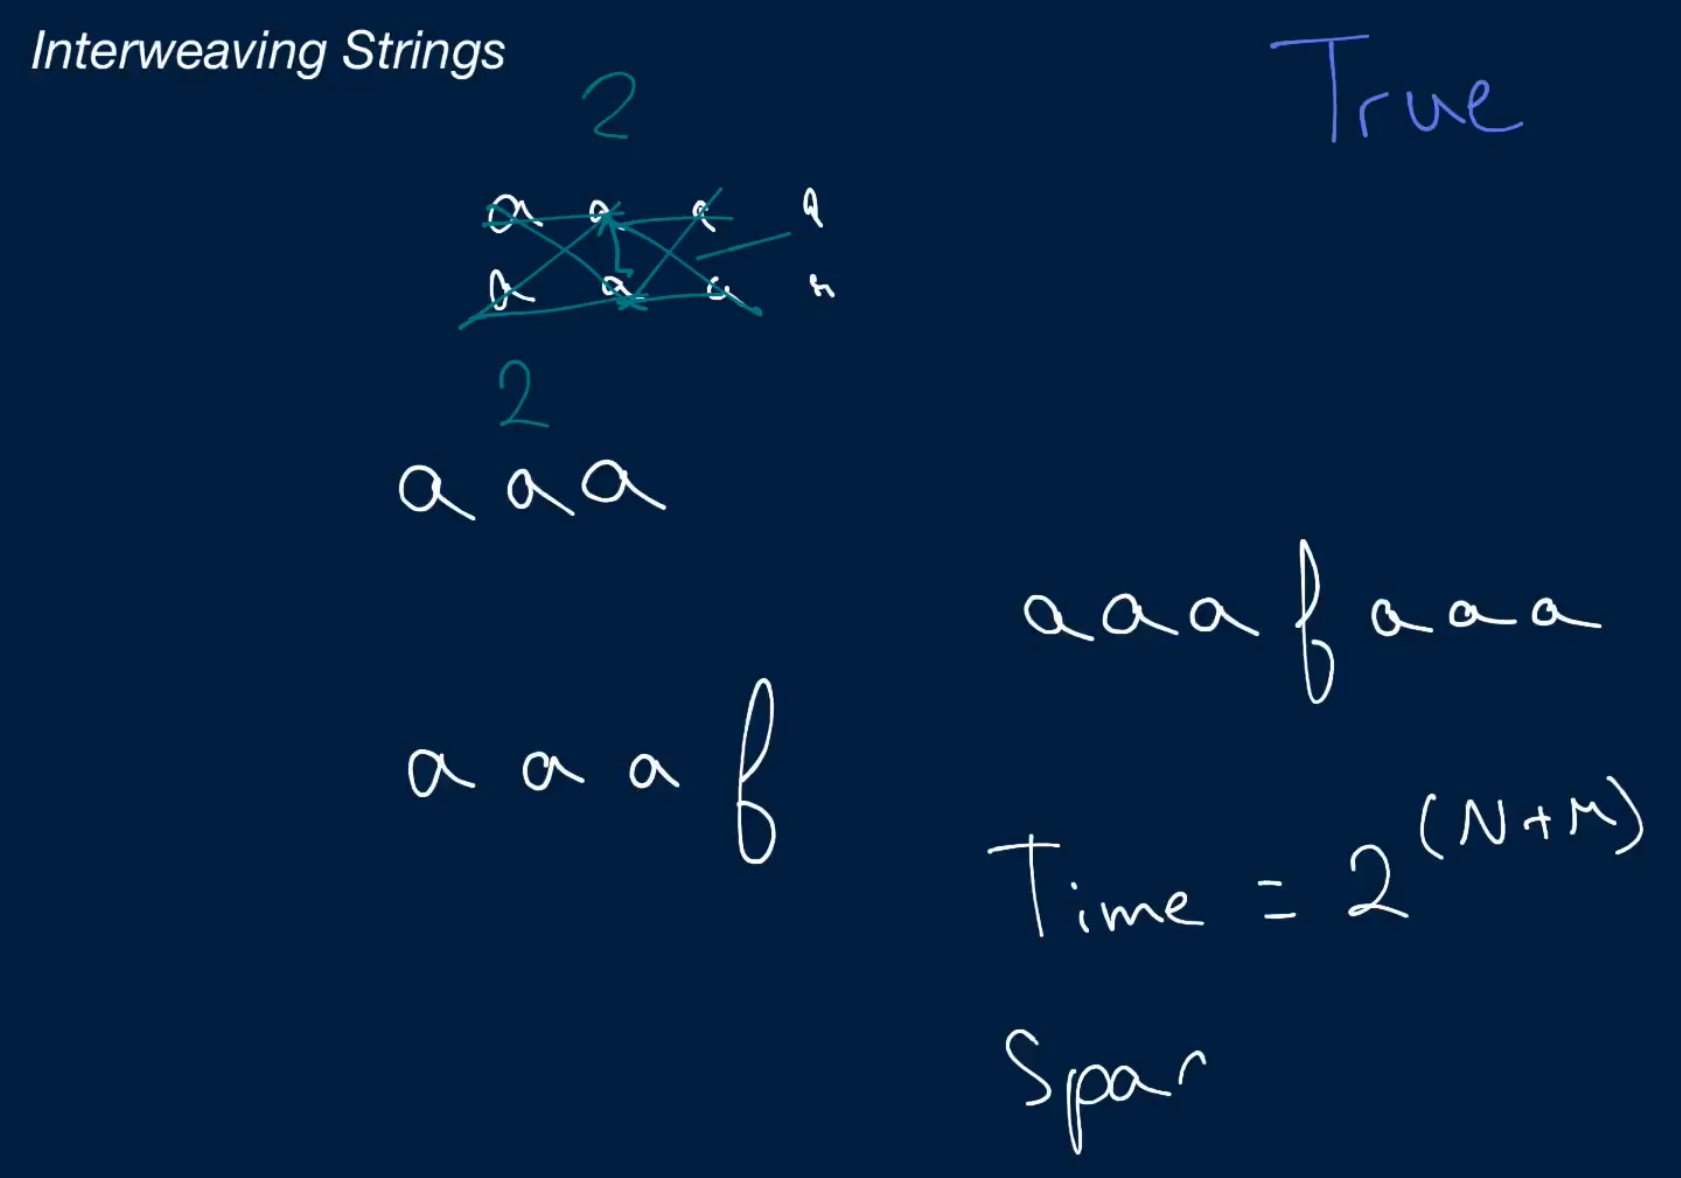 Interweaving Strings
True
2
a a a a
a a a
2
a a a
a a a f a a a
a a a f
Time = 2^(N+M)
Spac